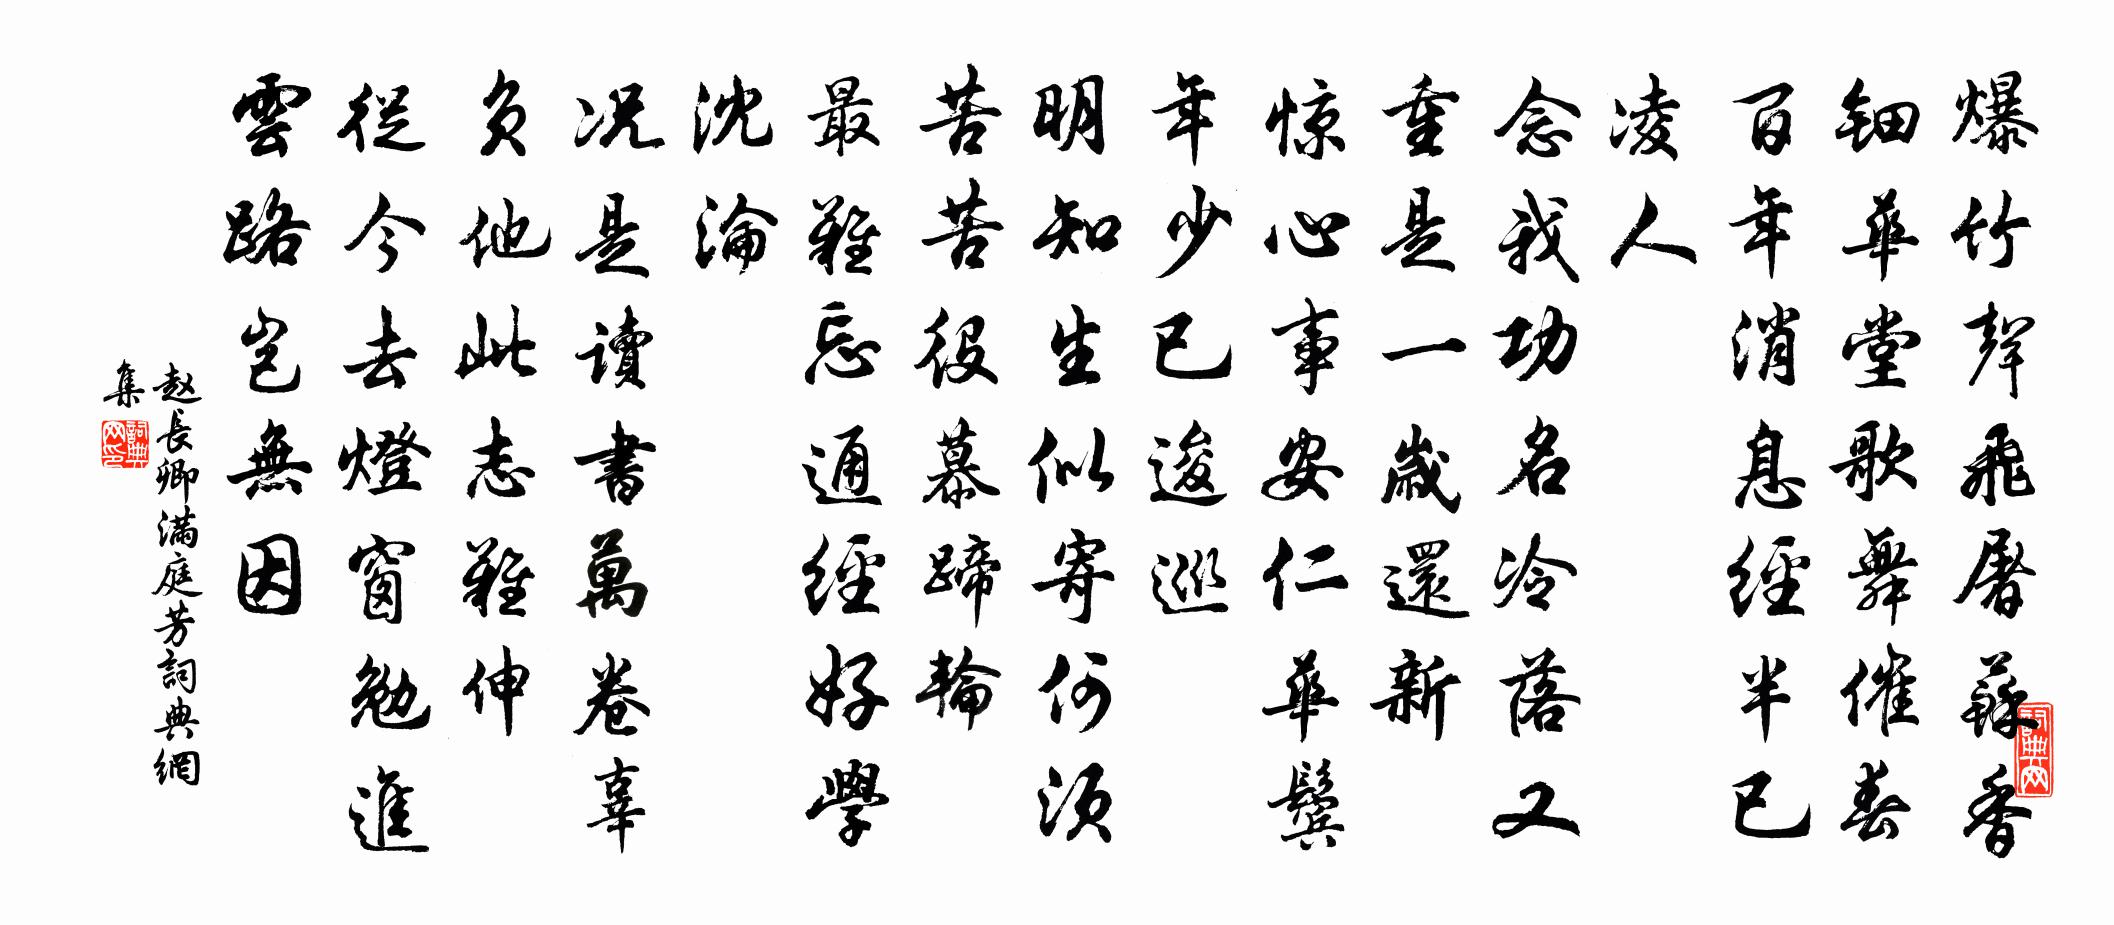 爆竹聲飛屠蘇香
鈿華堂歌舞催春
百年消息經半已
凌人
念我功名冷落又
重是一歲還新
惊心事安仁華鬢
年少已逡巡
明知生似寄何須
苦苦役慕蹄輪
最難忘通經好學
沈淪
况是讀書萬卷辜
負他此志難伸
從今去燈窗勉進
雲路豈無因
赵長卿滿庭芳詞典網
集
詞典网
詞典网印